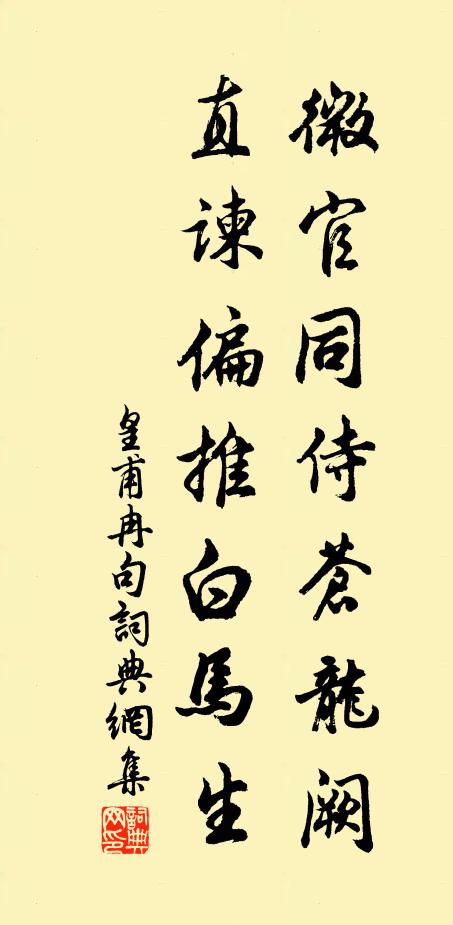 微官同侍蒼龍闕
直諫偏推白馬生
皇甫冉句詞典網集
詞典網印